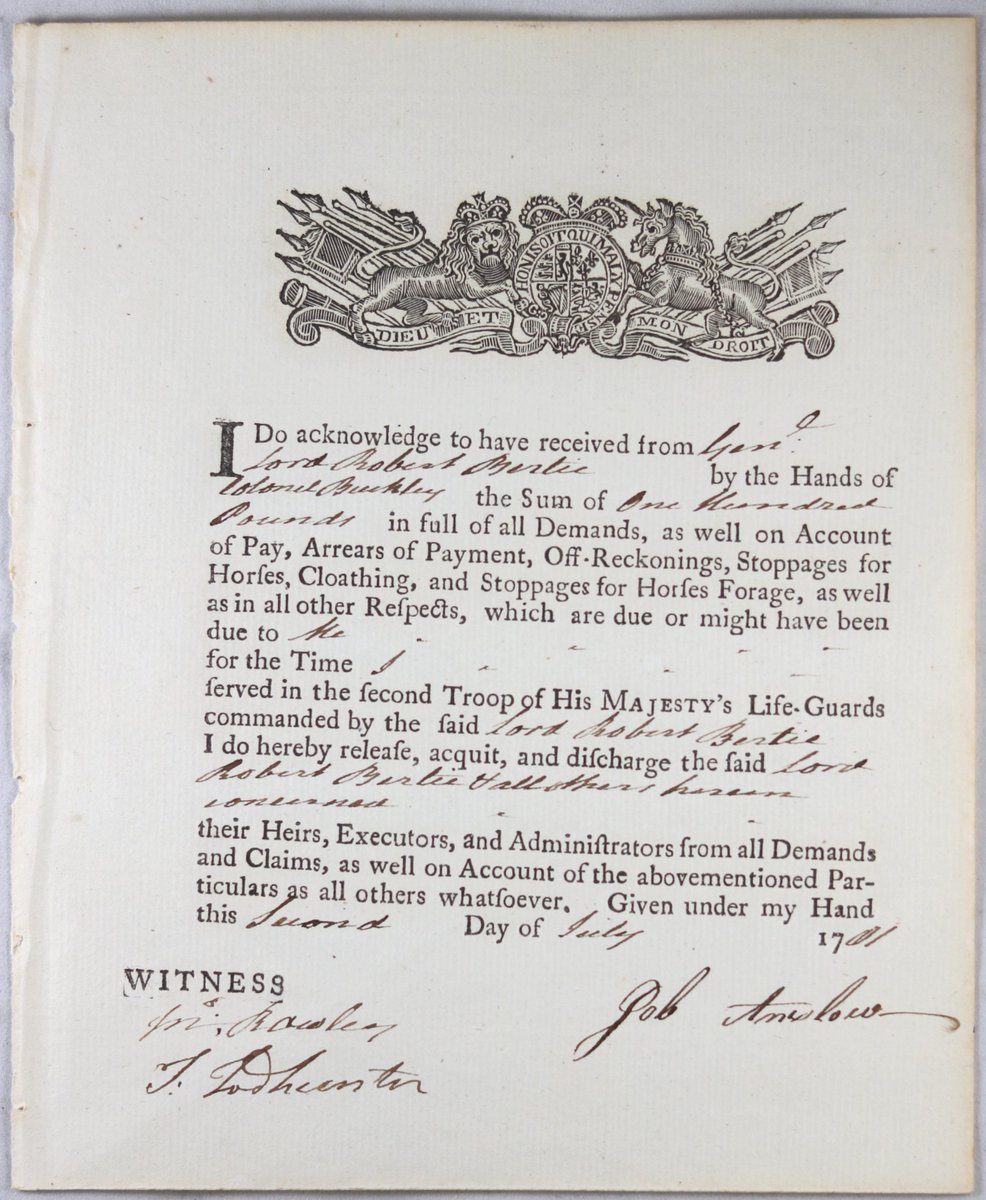 HONI SOIT QUI MAL Y PENSE
DIEU ET MON DROIT
I Do acknowledge to have received from Genl.
Lord Robert Bertie by the Hands of
Colonel Buckley the Sum of One Hundred
Pounds in full of all Demands, as well on Account
of Pay, Arrears of Payment, Off-Reckonings, Stoppages for
Horſes, Cloathing, and Stoppages for Horſes Forage, as well
as in all other Reſpects, which are due or might have been
due to Me
for the Time I
ſerved in the ſecond Troop of His MAJESTY'S Life-Guards
commanded by the ſaid Lord Robert Bertie
I do hereby releaſe, acquit, and diſcharge the ſaid Lord
Robert Bertie & all others herein
concerned
their Heirs, Executors, and Adminiſtrators from all Demands
and Claims, as well on Account of the abovementioned Par-
ticulars as all others whatſoever. Given under my Hand
this Second Day of July 1781
WITNESS
Job Anslow
Rowley
T.